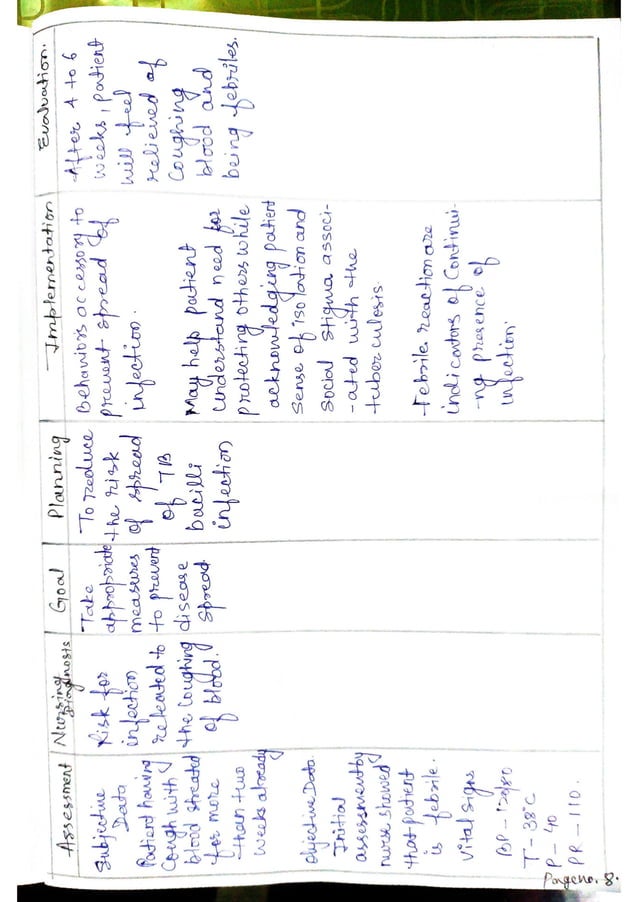 Assessment
Subjective
Data
Patient having
Cough with
blood streated
for more
than two
weeks already
Objective Data.
Initial
assessment by
nurse showed
that patient
is febrile.
Vital signs
BP - 120/80
T - 38°C
P - 40
PR - 110.
Nursing
Diagnosis
Risk for
infection
releated to
the coughing
of blood.
Goal
Take
appropriate
measures
to prevent
disease
spread.
Planning
To reduce
the risk
of spread
of TB
bacilli
infection
Implementation
Behaviors accessory to
prevent spread of
infection.
May help patient
understand need for
protecting others while
acknowledging patient
sense of isolation and
social stigma associ-
-ated with the
tuberculosis.
-Febrile reaction are
indicators of Continui-
-ng presence of
infection.
Evaluation.
-After 4 to 6
weeks, patient
will feel
relieved of
coughing
blood and
being febriles.
Page no. 8.